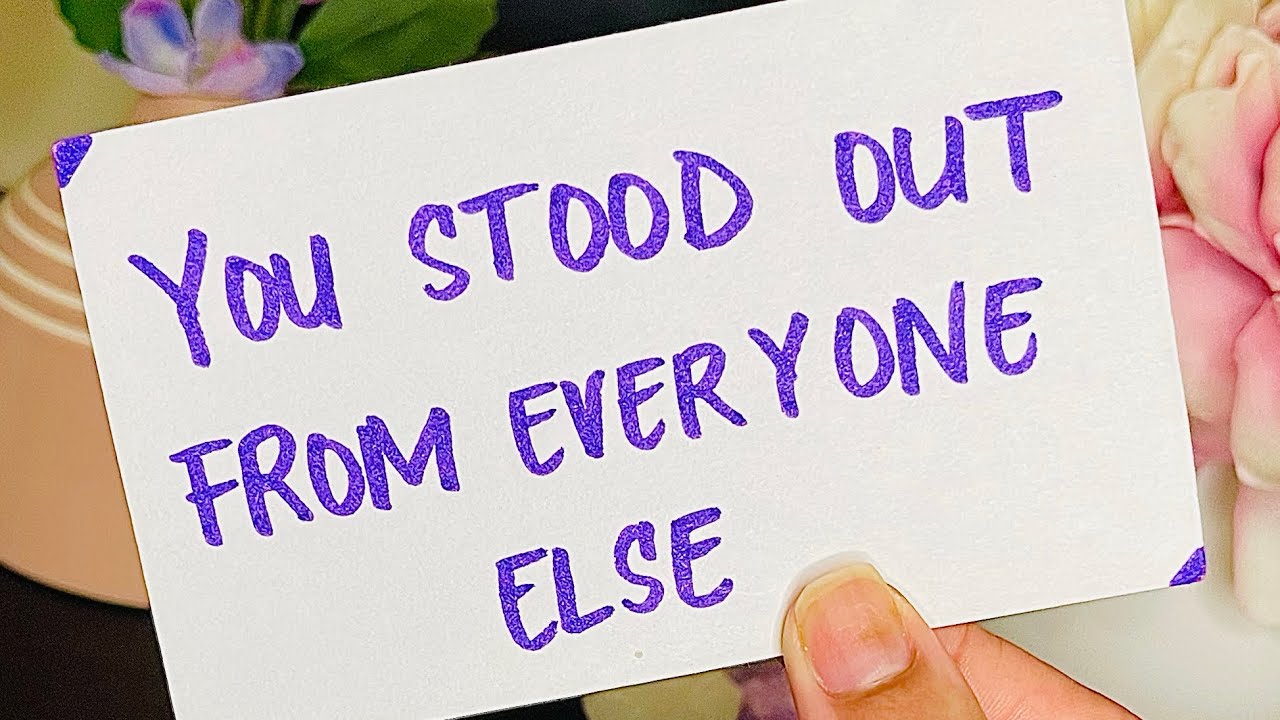 YOU STOOD OUT
FROM EVERYONE
ELSE